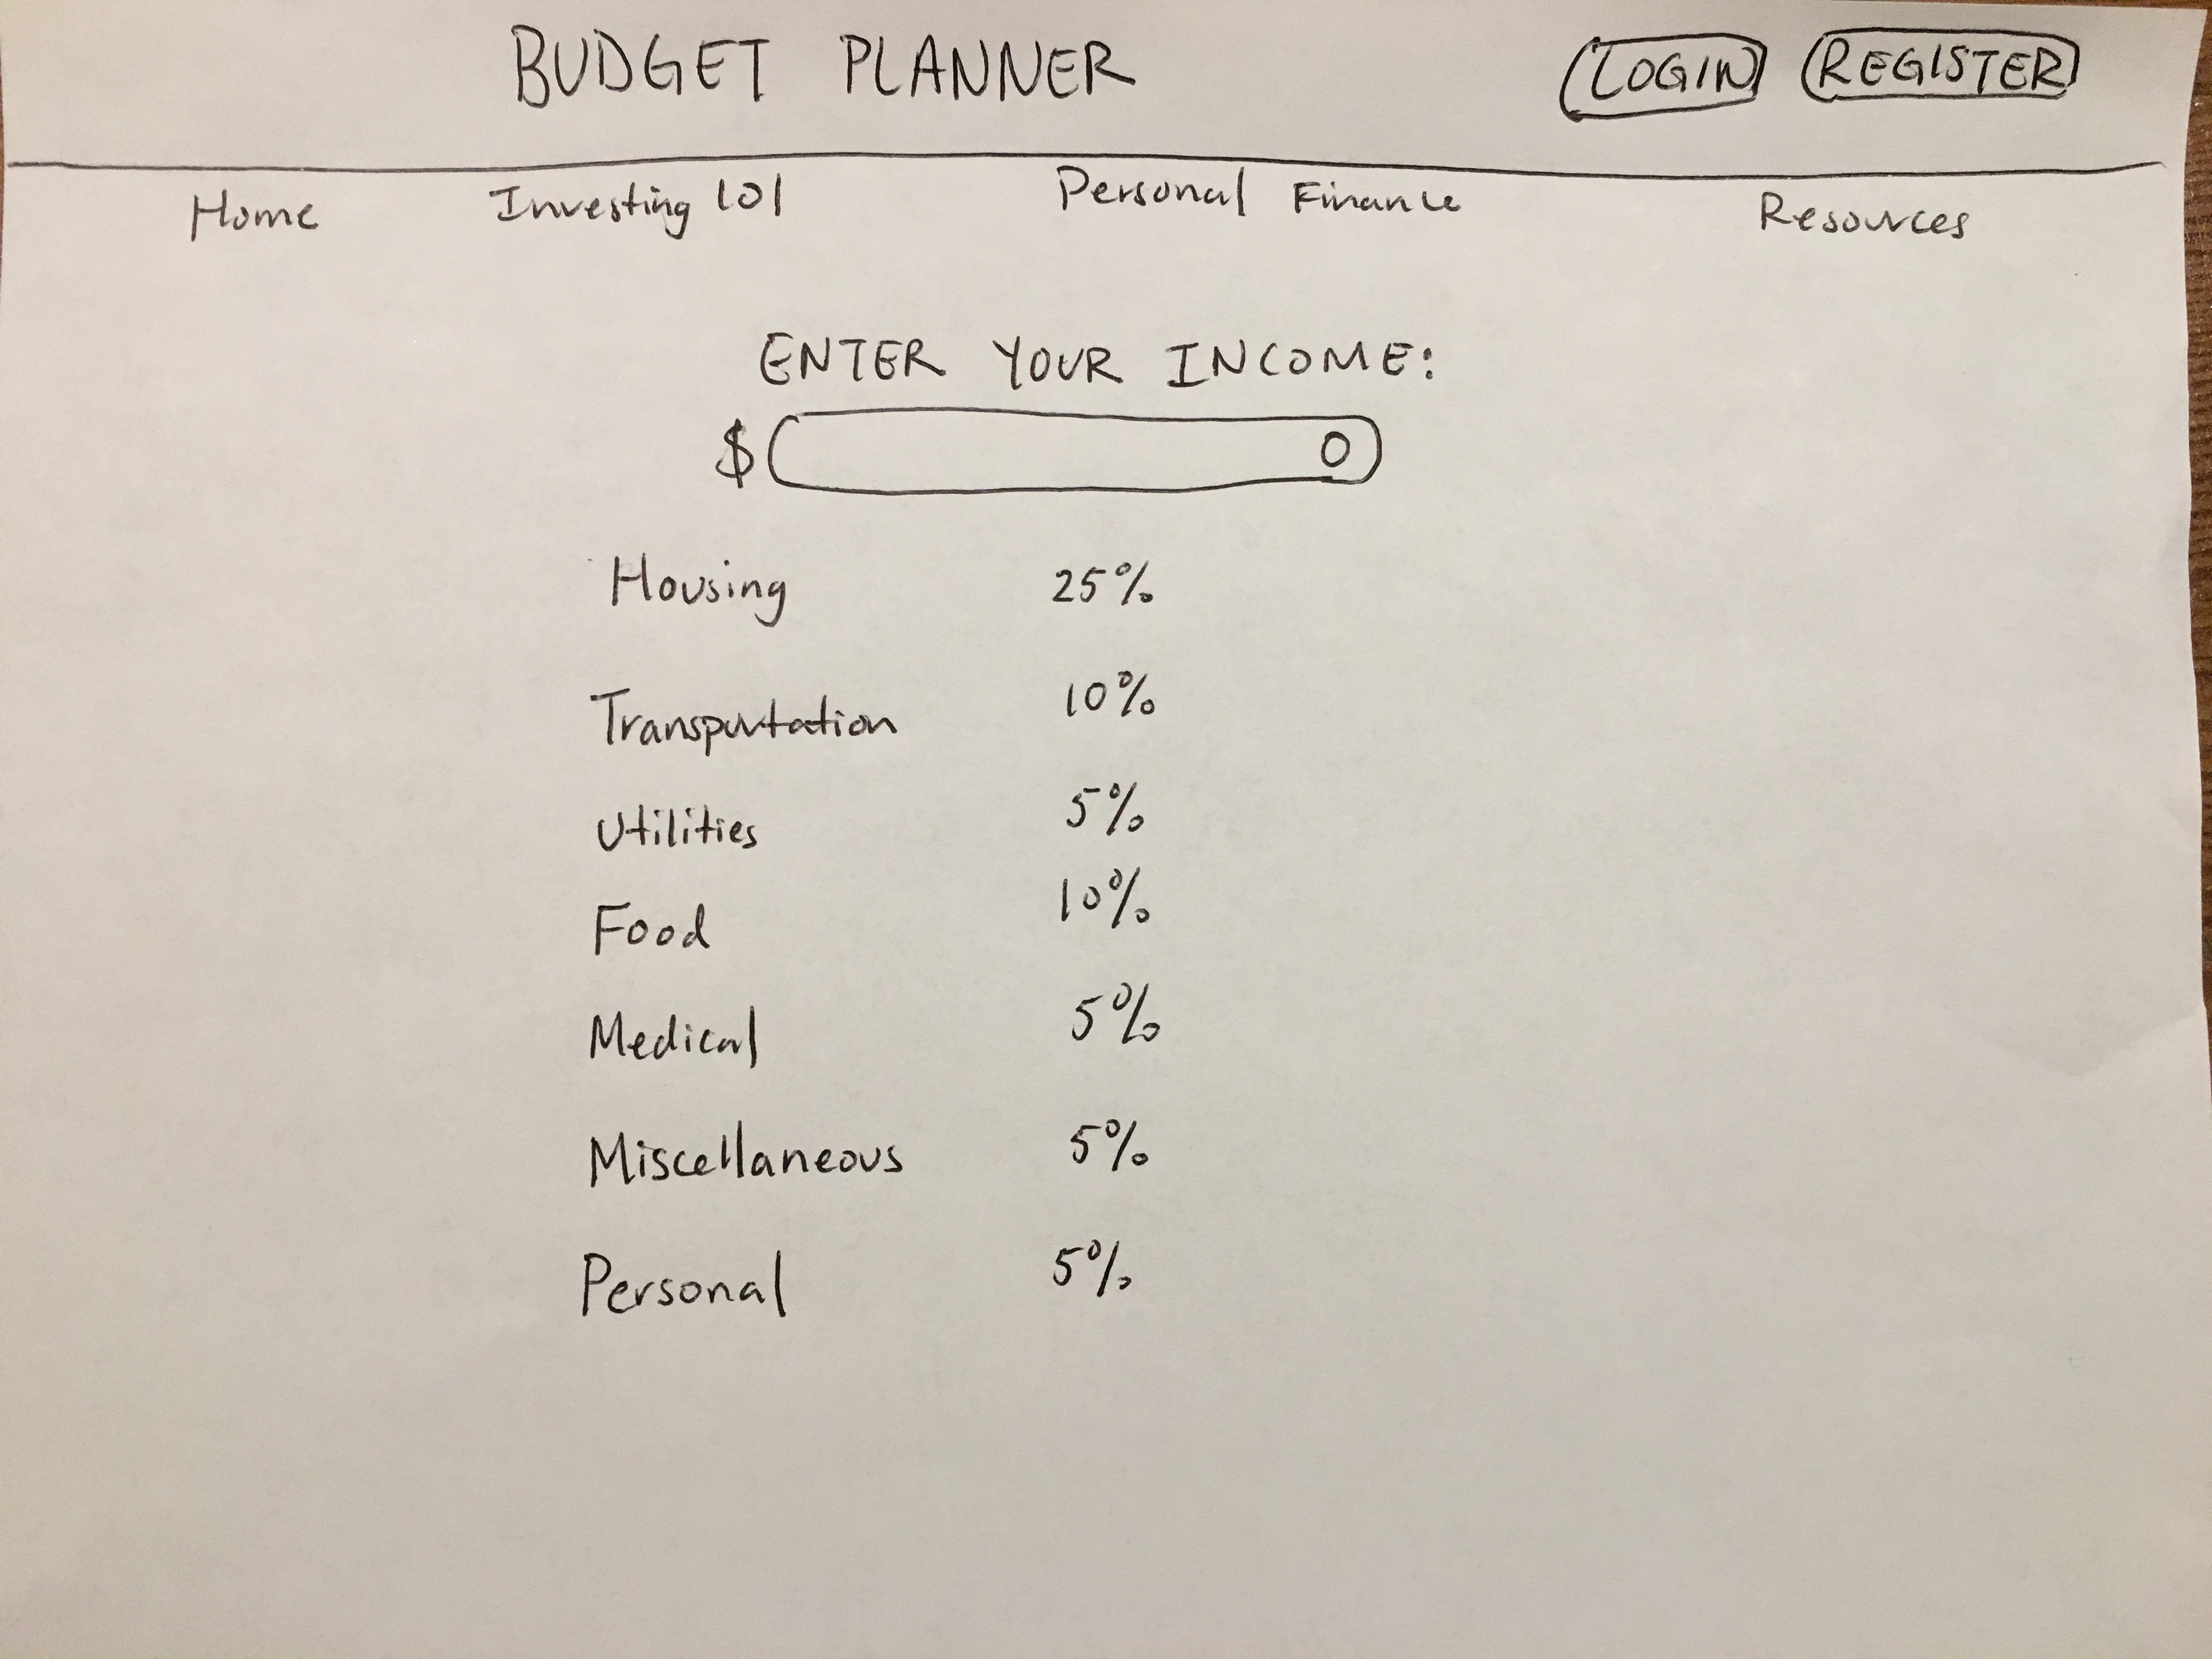 BUDGET PLANNER LOGIN REGISTER
Home Investing 101 Personal Finance Resources
ENTER YOUR INCOME:
$ 0
Housing 25%
Transportation 10%
Utilities 5%
Food 10%
Medical 5%
Miscellaneous 5%
Personal 5%